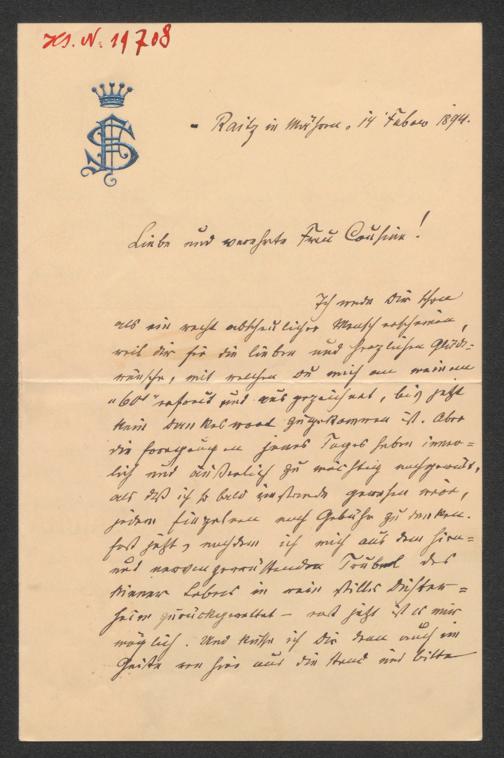 H.I.N. 19708
Raitz in Mähren, 14 Feber 1894.
Liebe und verehrte Frau Cousine!
Ich werde Dir schon
als ein recht abscheulicher Mensch erscheinen,
weil dir für die lieben und herzlichen Glück=
wünsche, mit welchen Du mich an meinem
"60" erfreut und ausgezeichnet, bis jetzt
kein Dankeswort zugekommen ist. Aber
die Erregungen jenes Tages haben inner=
lich und äußerlich zu mächtig nachgewirkt,
als daß ich so bald imstande gewesen wäre,
jedem Einzelnen nach Gebühr zu danken.
Erst jetzt, nachdem ich mich aus dem hirn=
und nervenzerrüttenden Trubel des
Wiener Lebens in mein stilles Dichter=
heim zurückgerettet – erst jetzt ist es mir
möglich. Und küsse ich Dir denn auch im
Geiste von hier aus die Hand und bitte